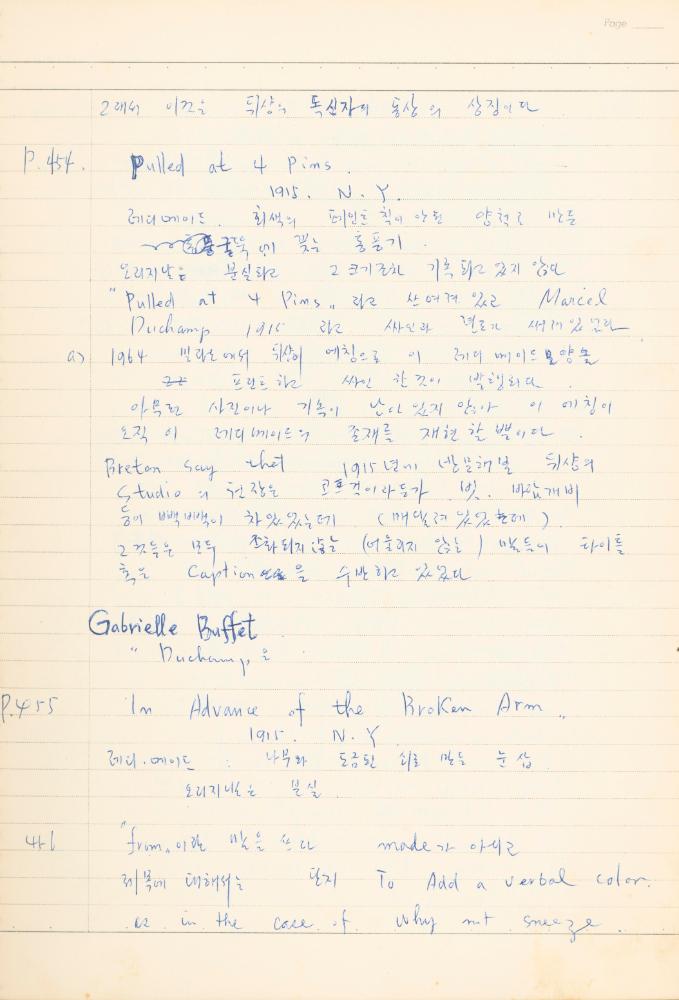 Page
그래서 이것은 뒤샹의 독신자의 통상의 상징이다
P.454. Pulled at 4 Pins.
1915. N. Y.
레디메이드. 회색의 페인트 칠이 안된 양철로 만든
굴뚝 위에 꽂는 통풍기.
오리지날은 분실되고 그 크기조차 기록되고 있지 않다
"Pulled at 4 Pins" 라고 쓰여져 있고 Marcel
Duchamp 1915 라고 싸인과 년도가 써져 있는
a) 1964 밀라노에서 뒤샹이 에칭으로 이 레디 메이드 모양을
프린트 하고 싸인 한 것이 발행되다.
아무런 사진이나 기록이 남아 있지 않아 이 에칭이
오직 이 레디메이드의 존재를 재현 할 뿐이다.
Breton say that 1915년에 방문해 본 뒤샹의
Studio의 천장은 코트걸이라든가, 빗, 바람개비
등이 빽빽이 차 있었는데 (매달려 있었는데).
그것들은 모두 조화되지 않는 (어울리지 않는) 말들의 타이틀
혹은 Caption을 수반하고 있었다
Gabrielle Buffet
"Duchamp은
P.455 In Advance of the Broken Arm"
1915. N. Y
레디.메이드: 나무와 도금된 쇠로 만든 눈 삽
오리지날은 분실.
456 "from"이란 말을 쓰다 made가 아니고
제목에 대해서는 단지 To Add a verbal color.
as in the case of why not sneeze.